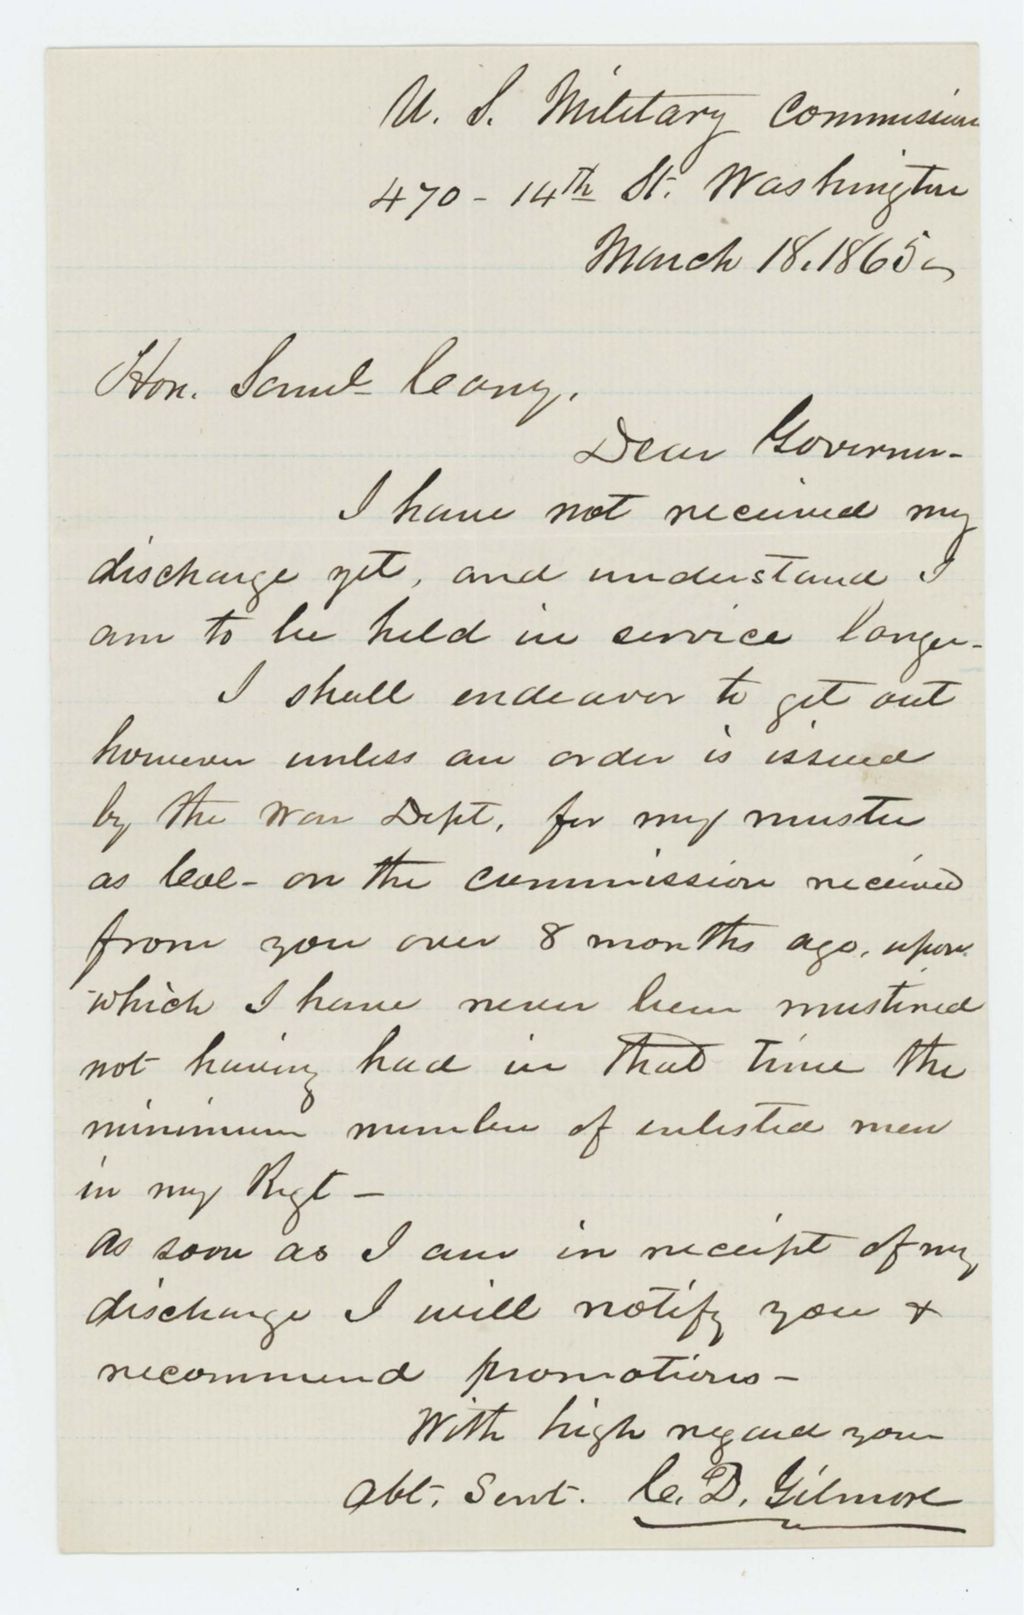 U. S. Military Commission
470 - 14th St. Washington
March 18. 1865
Hon. Saml Cony.
Dear Governor -
I have not received my
discharge yet, and understand I
am to be held in service longer -
I shall endeavor to get out
however unless an order is issued
by the War Dept. for my muster
as Col - on the commission received
from you over 8 months ago, upon
which I have never been mustered
not having had in that time the
minimum number of enlisted men
in my Regt -
As soon as I am in receipt of my
discharge I will notify you &
recommend promotions -
With high regard your
Obt. Servt. C. D. Gilmore